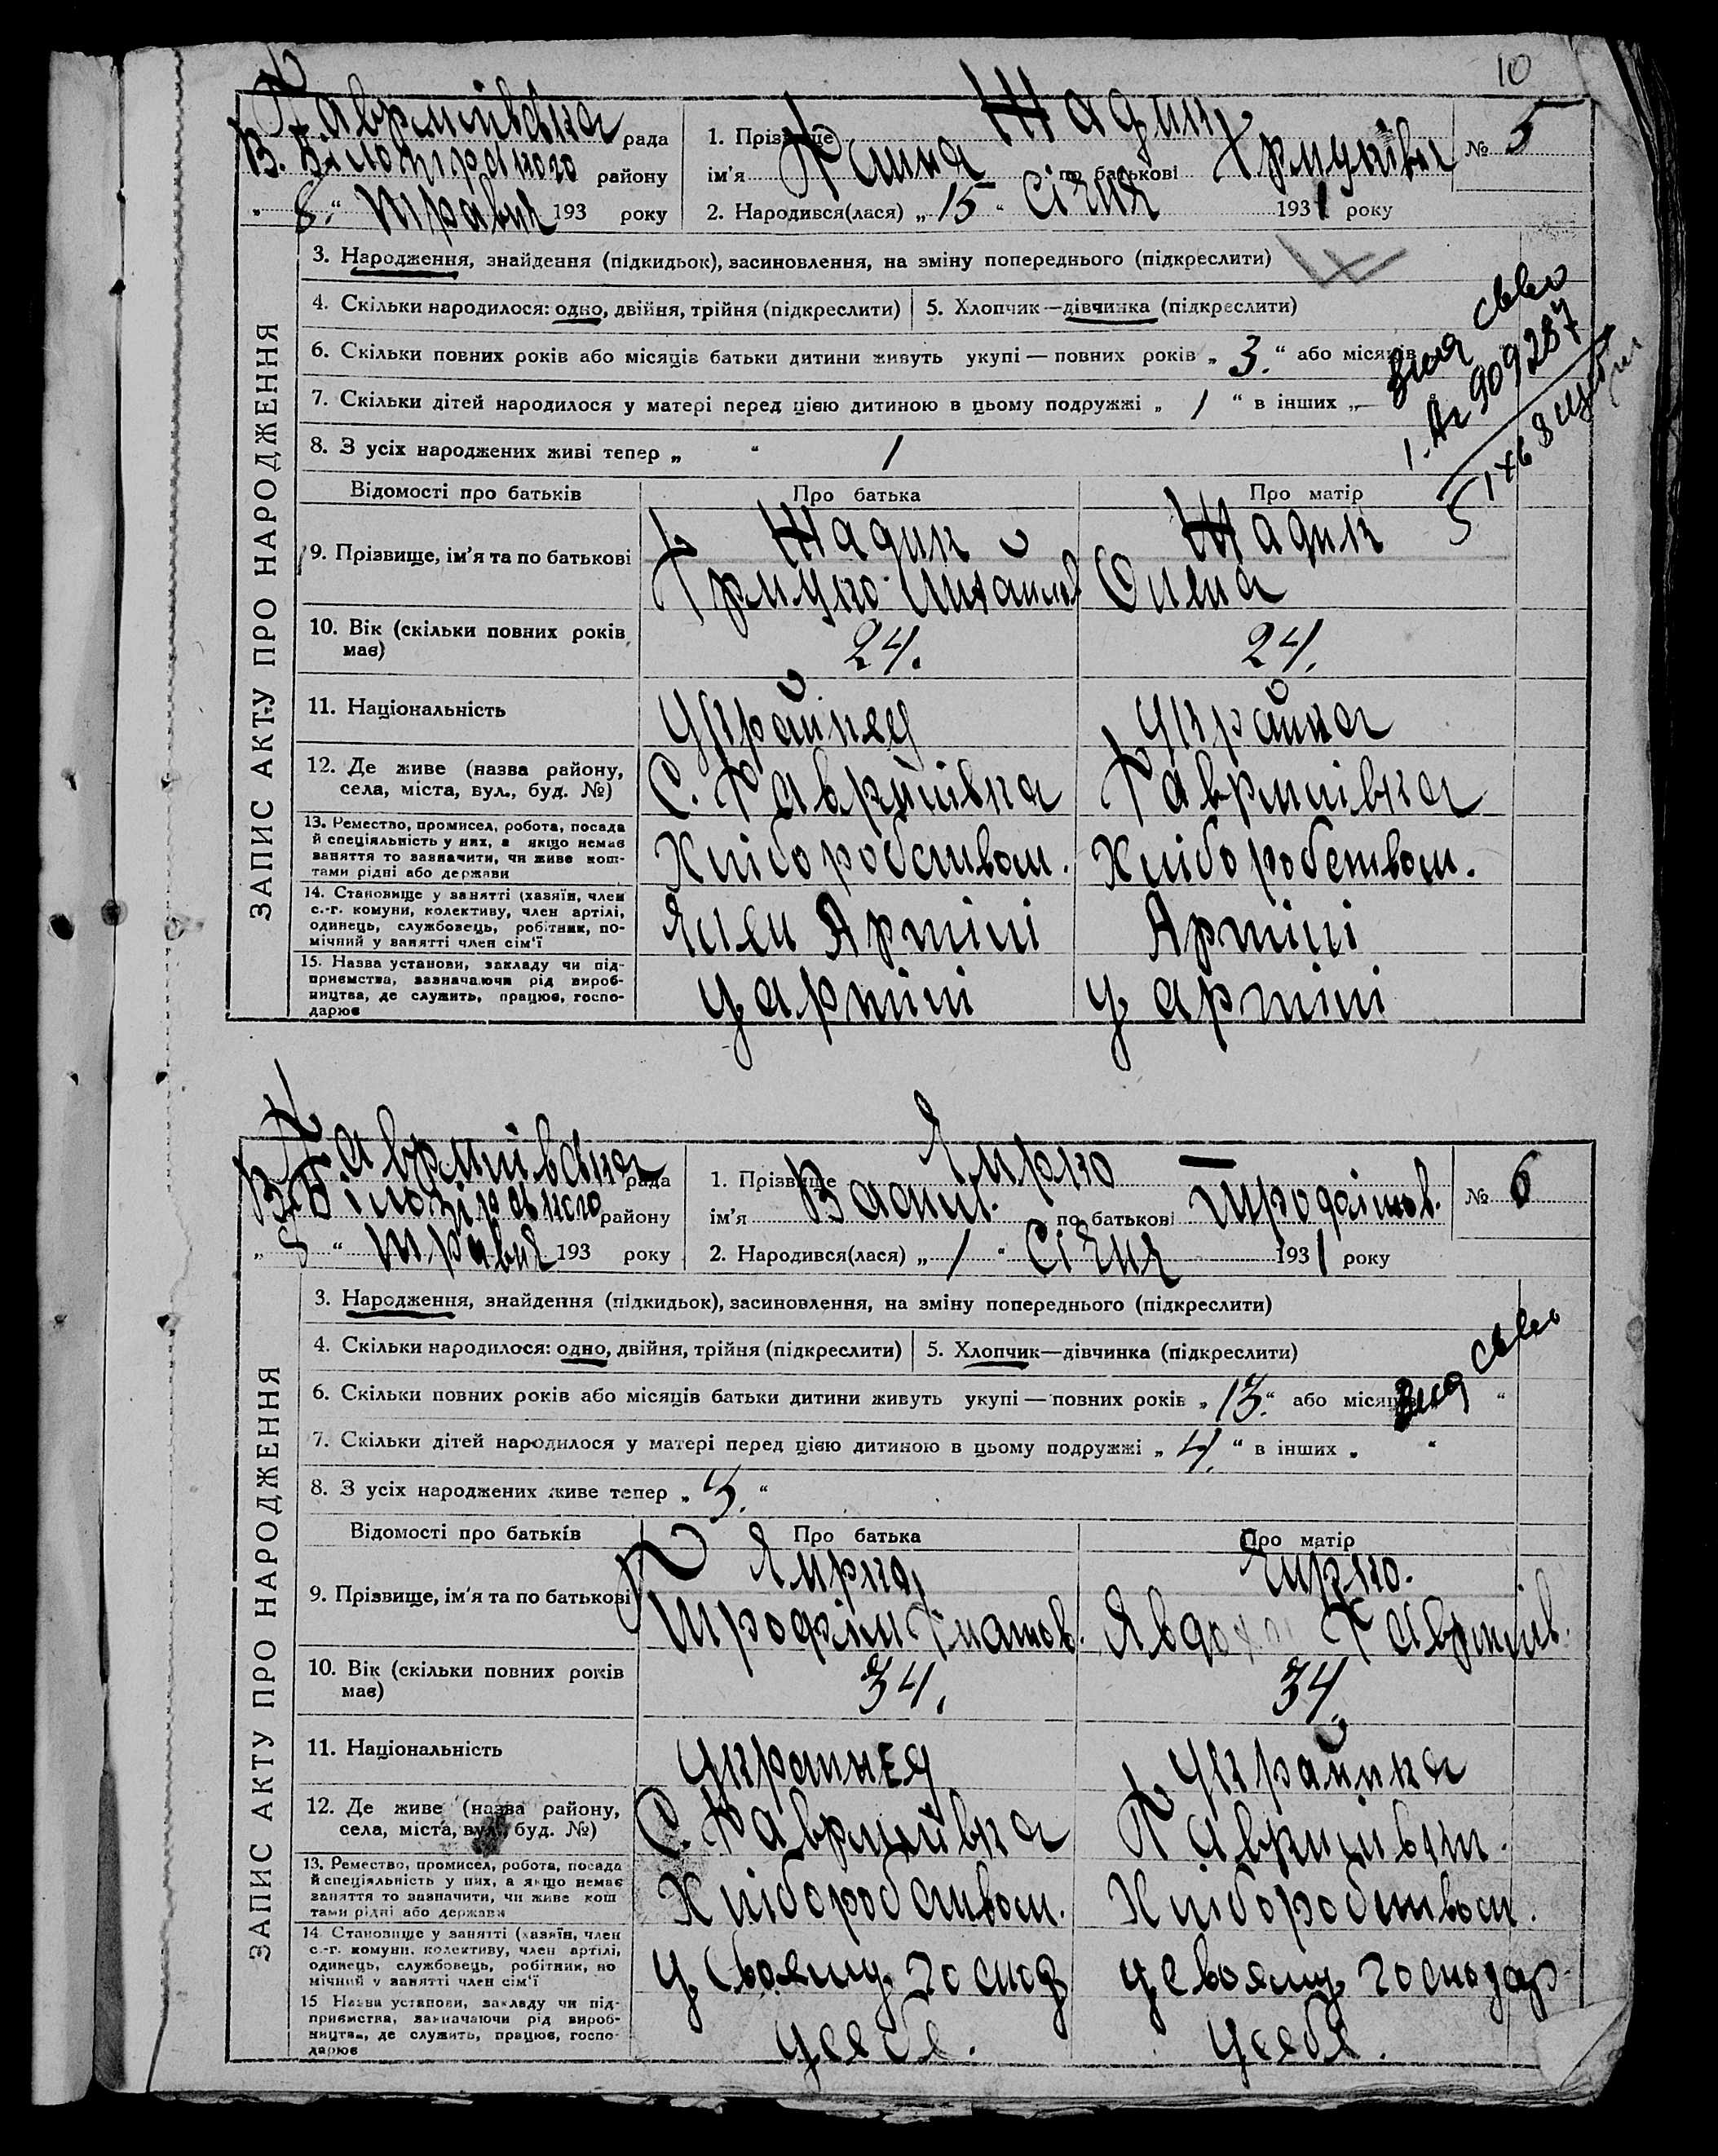 10
Гаврилівська рада
В. Білозірського району
„ 8 “ травня 193 року
1. Прізвище Жадик
ім'я Ганна по батькові Грицківн
2. Народився(лася) „ 15 “ Січня 1931 року
№ 5
ЗАПИС АКТУ ПРО НАРОДЖЕННЯ
3. Народження, знайдення (підкидьок), засиновлення, на зміну попереднього (підкреслити)
4. Скільки народилося: одно, двійня, трійня (підкреслити) 5. Хлопчик—дівчинка (підкреслити)
6. Скільки повних років або місяців батьки дитини живуть укупі — повних років „ 3. “ або місяців
7. Скільки дітей народилося у матері перед цією дитиною в цьому подружжі „ 1 “ в інших „ —
8. З усіх народжених живі тепер „ “ 1
909287
Відомості про батьків Про батька Про матір
9. Прізвище, ім'я та по батькові
Жадик Жадик
Грицко Михайлов Олена
10. Вік (скільки повних років має) 24. 24.
11. Національність Українец Українка
12. Де живе (назва району, села, міста, вул., буд. №) С. Гаврилівка Гаврилівка
13. Ремество, промисел, робота, посада й спеціяльність у них, а якщо немає заняття то зазначити, чи живе коштами рідні або держави Хліборобством. Хліборобством.
14. Становище у занятті (хазяїн, член с.-г. комуни, колективу, член артілі, одинець, службовець, робітник, помічний у занятті член сім'ї Член Артілі Артілі
15. Назва установи, закладу чи підприємства, зазначаючи рід виробництва, де служить, працює, господарює у артілі у артілі
Гаврилівська рада
В. Білозірського району
„ 8 “ травня 193 року
1. Прізвище Ярко
ім'я Васил. по батькові Трофімов.
2. Народився(лася) „ 1 “ Січня 1931 року
№ 6
ЗАПИС АКТУ ПРО НАРОДЖЕННЯ
3. Народження, знайдення (підкидьок), засиновлення, на зміну попереднього (підкреслити)
4. Скільки народилося: одно, двійня, трійня (підкреслити) 5. Хлопчик—дівчинка (підкреслити)
6. Скільки повних років або місяців батьки дитини живуть укупі — повних років „ 13. “ або місяців “
7. Скільки дітей народилося у матері перед цією дитиною в цьому подружжі „ 4. “ в інших „ “
8. З усіх народжених живе тепер „ 3. “
Відомості про батьків Про батька Про матір
9. Прізвище, ім'я та по батькові
Трофім Гнатов. Явдо Гаврилів.
10. Вік (скільки повних років має) 34. 34.
11. Національність Украинец Українка
12. Де живе (назва району, села, міста, вул., буд. №) С. Гаврилівка Гаврилівк.
13. Ремество, промисел, робота, посада й спеціяльність у них, а якщо немає заняття то зазначити, чи живе коштами рідні або держави Хліборобством. Хліборобством.
14. Становище у занятті (хазяїн, член с.-г. комуни, колективу, член артілі, одинець, службовець, робітник, помічний у занятті член сім'ї у свояму госпд у свояму господар
15 Назва установи, закладу чи підприємства, зазначаючи рід виробництва, де служить, працює, господарює у себе. у себе.